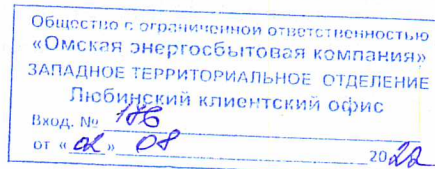 Общество с ограниченной ответственностью
«Омская энергосбытовая компания»
ЗАПАДНОЕ ТЕРРИТОРИАЛЬНОЕ ОТДЕЛЕНИЕ
Любинский клиентский офис
Вход. № 186
от «02» 08 2022